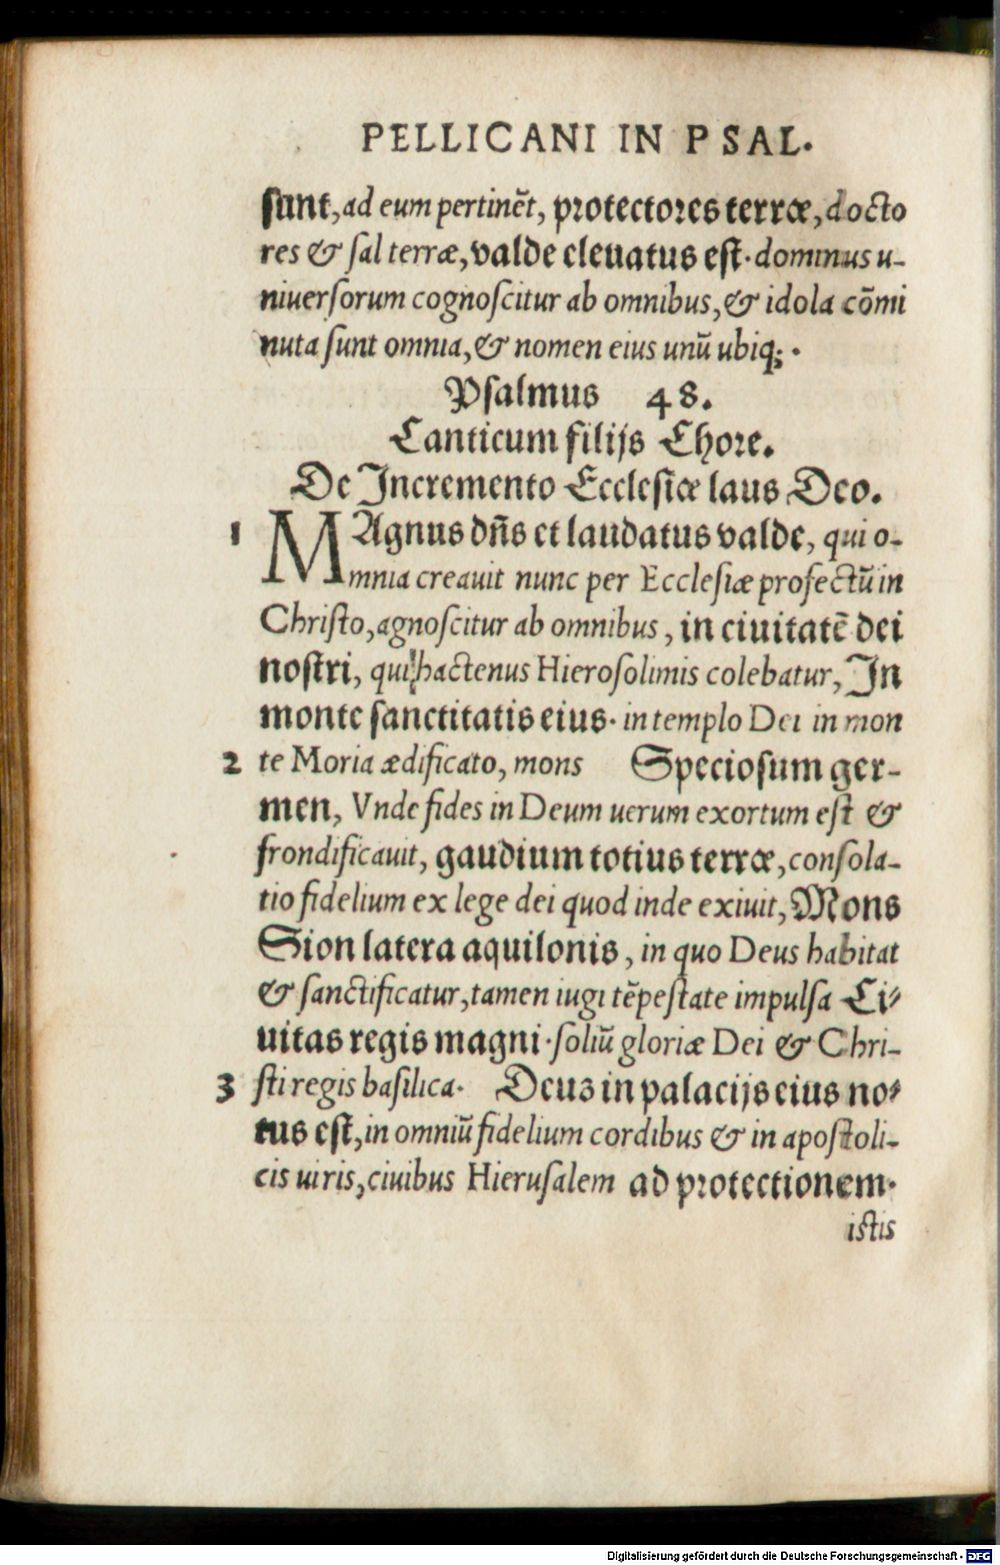 PELLICANI IN PSAL.
sunt, ad eum pertinēt, protectores terræ, docto
res & sal terræ, valde eleuatus est. dominus u-
niuersorum cognoscitur ab omnibus, & idola cōmi
nuta sunt omnia, & nomen eius unū ubiq; .
Psalmus 48.
Canticum filijs Chore.
De Incremento Ecclesiæ laus Deo.
1 MAgnus dñs et laudatus valde, qui o-
mnia creauit nunc per Ecclesiæ profectū in
Christo, agnoscitur ab omnibus, in ciuitatē dei
nostri, qui hactenus Hierosolimis colebatur, In
monte sanctitatis eius. in templo Dei in mon
2 te Moria ædificato, mons Speciosum ger-
men, Vnde fides in Deum uerum exortum est &
frondificauit, gaudium totius terræ, consola-
tio fidelium ex lege dei quod inde exiuit, Mons
Sion latera aquilonis, in quo Deus habitat
& sanctificatur, tamen iugi tēpestate impulsa Ci-
uitas regis magni. soliū gloriæ Dei & Chri-
3 sti regis basilica. Deus in palacijs eius no-
tus est, in omniū fidelium cordibus & in apostoli-
cis uiris, ciuibus Hierusalem ad protectionem.
istis
Digitalisierung gefördert durch die Deutsche Forschungsgemeinschaft - DFG